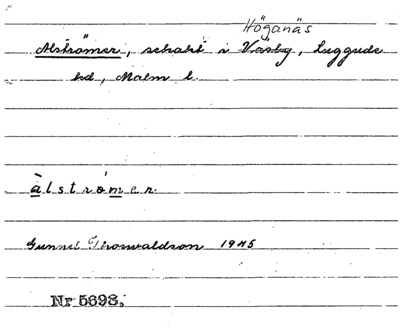 Höganäs
Alströmer, schakt i Väsby, Luggude
hd, Malm l.
àlstrómer
Gunnel Thorwaldson 1945
Nr 5693.